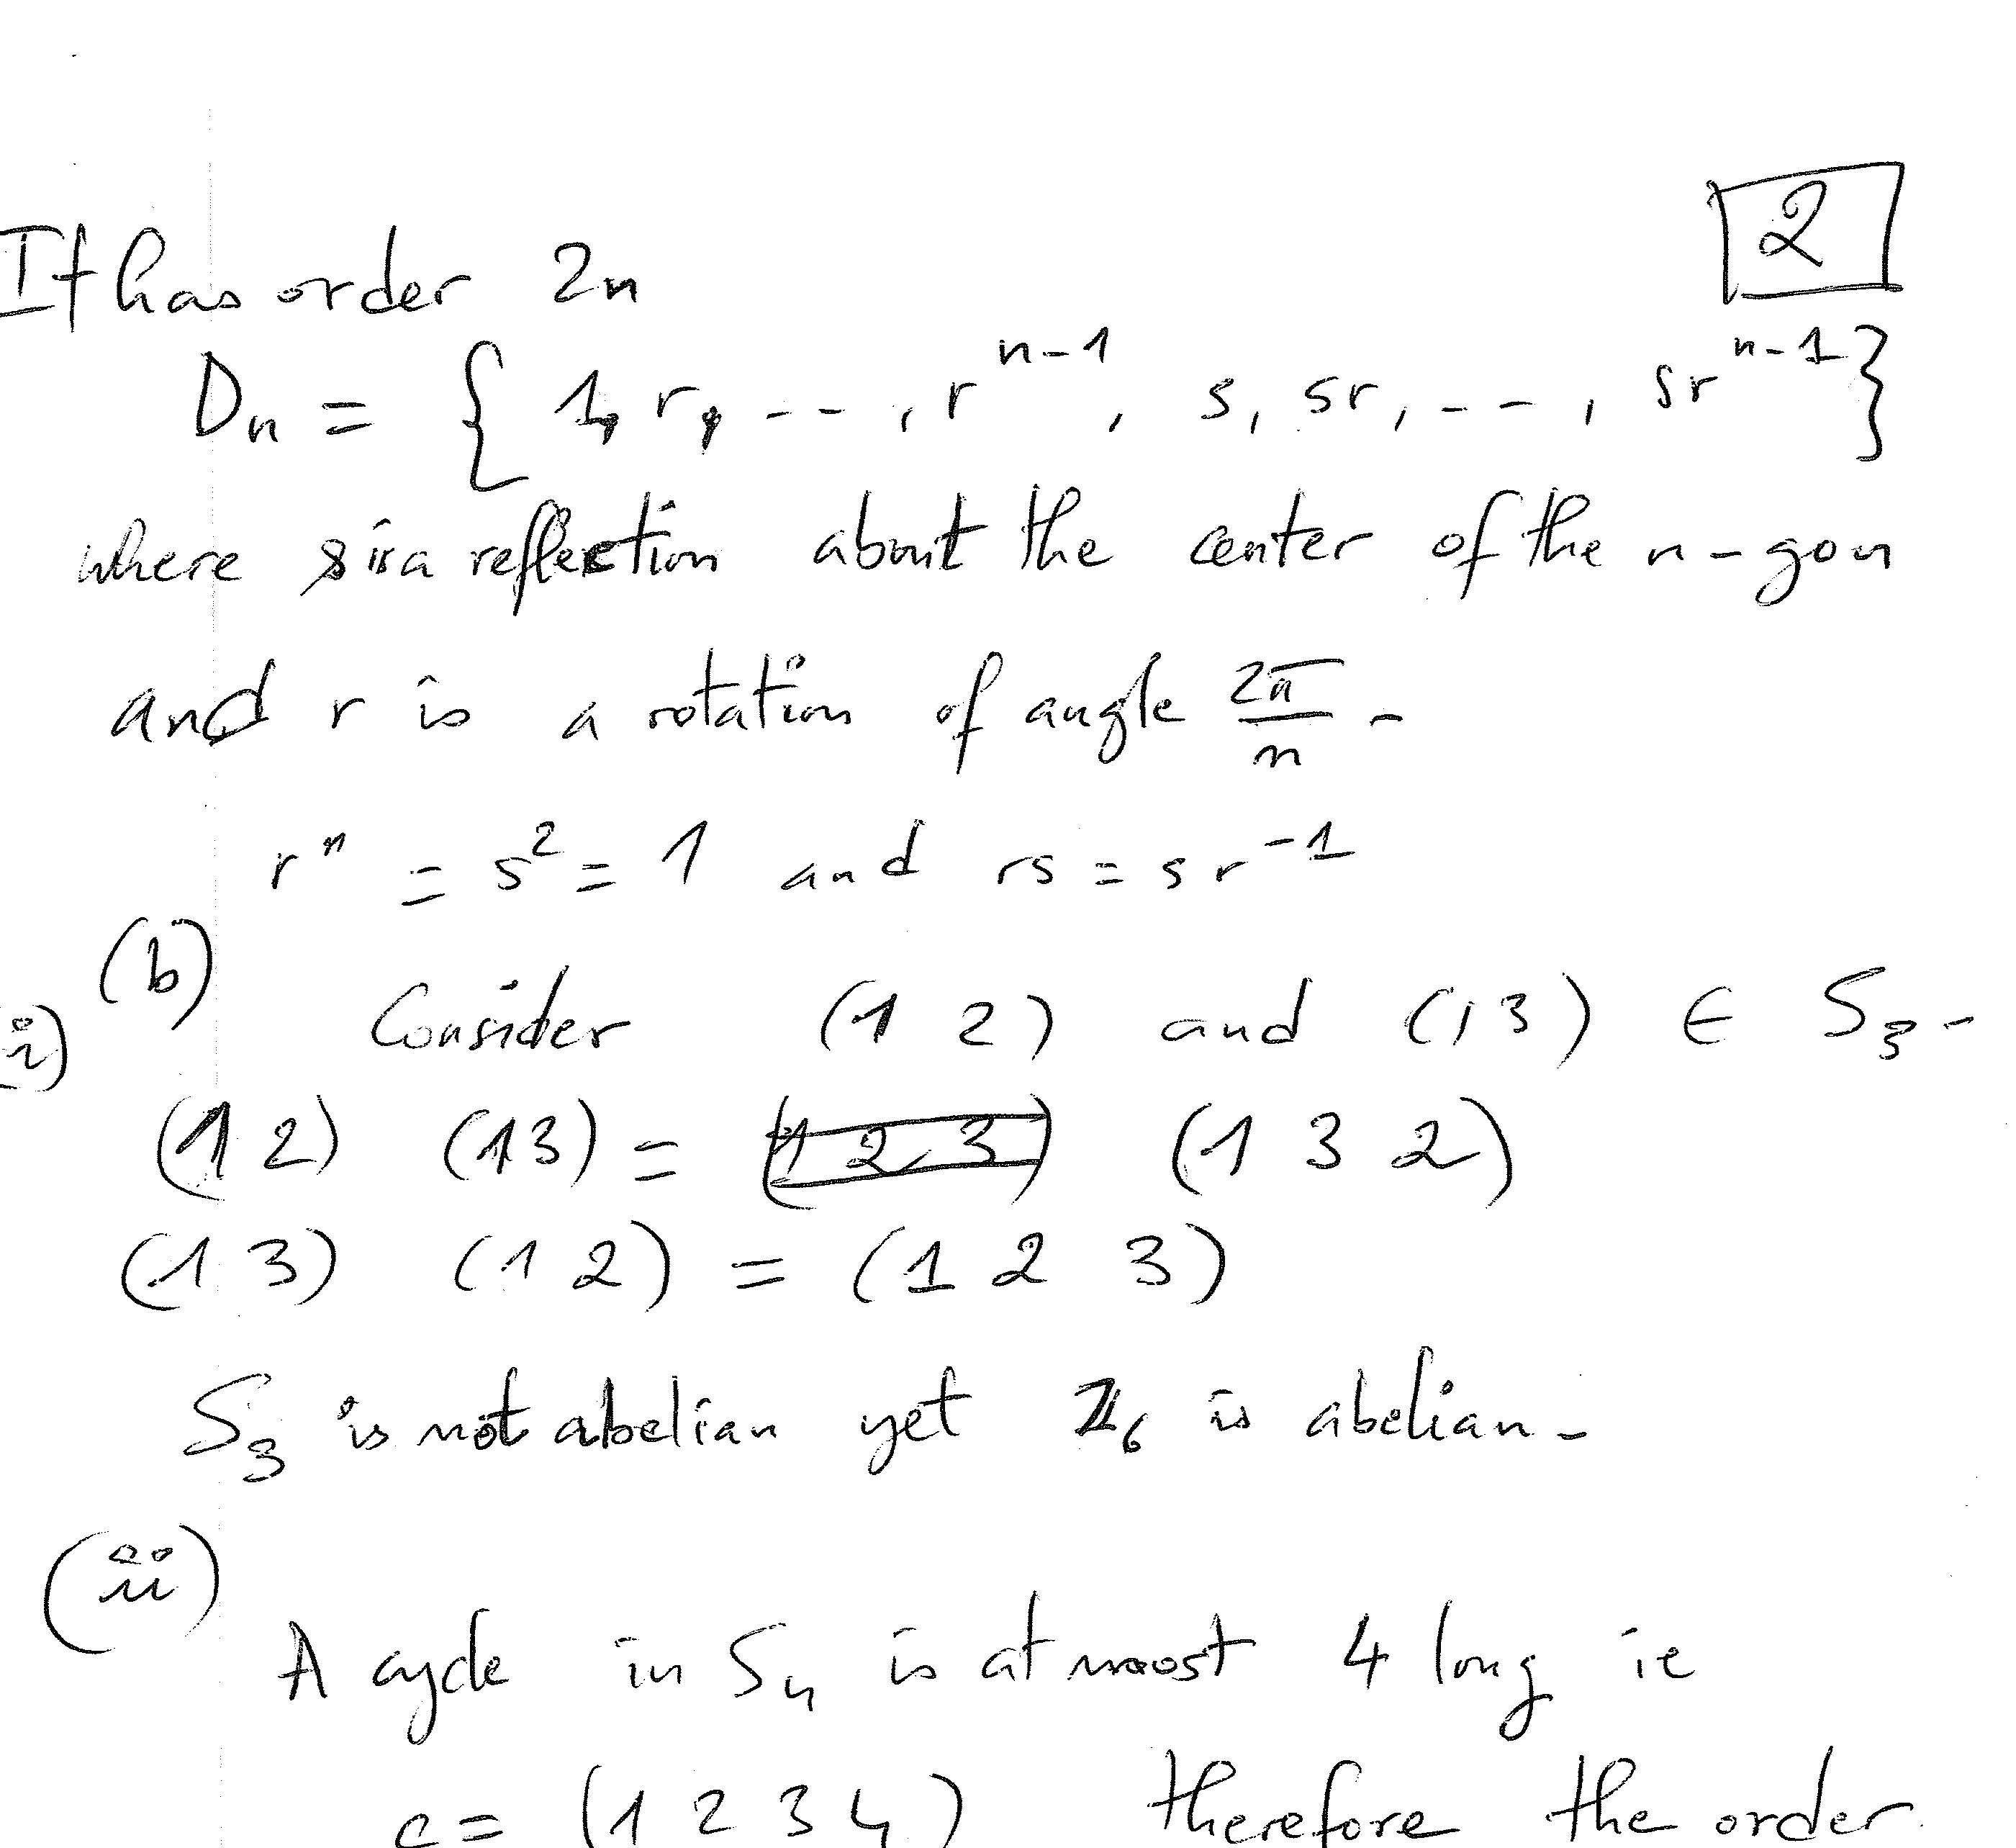 2
It has order 2n
Dn = { 1, r, --- , r^{n-1} , s, sr, --- , sr^{n-1} }
where s is a reflection about the center of the n-gon
and r is a rotation of angle 2π/n -
r^n = s^2 = 1 and rs = sr^{-1}
(b)
i) Consider (1 2) and (13) ∈ S3-
(1 2) (13) = (1 2 3) (1 3 2)
(1 3) (1 2) = (1 2 3)
S3 is not abelian yet Z6 is abelian-
(ii)
A cycle in S4 is at most 4 long ie
c = (1 2 3 4) therefore the order